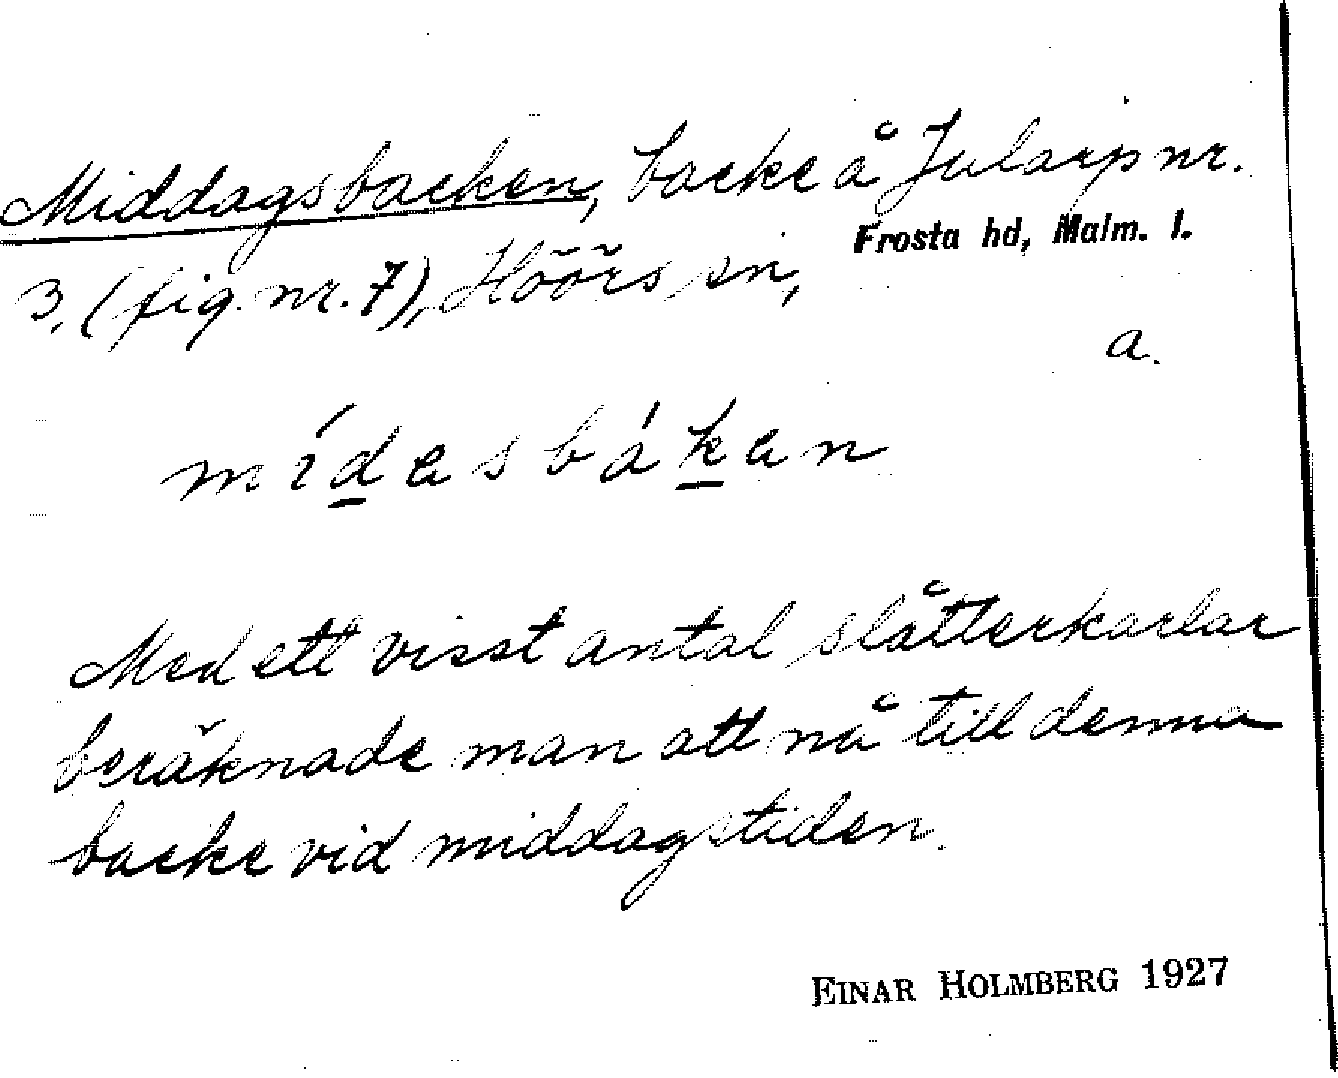 Middagsbacken, backe å Jularp nr.
Frosta hd, Malm. l.
3, (fig. nr. 7), Höörs sn,
a.
mídasbákan
Med ett visst antal slåtterkarlar
beräknade man att nå till denna
backe vid middagstiden.
EINAR HOLMBERG 1927